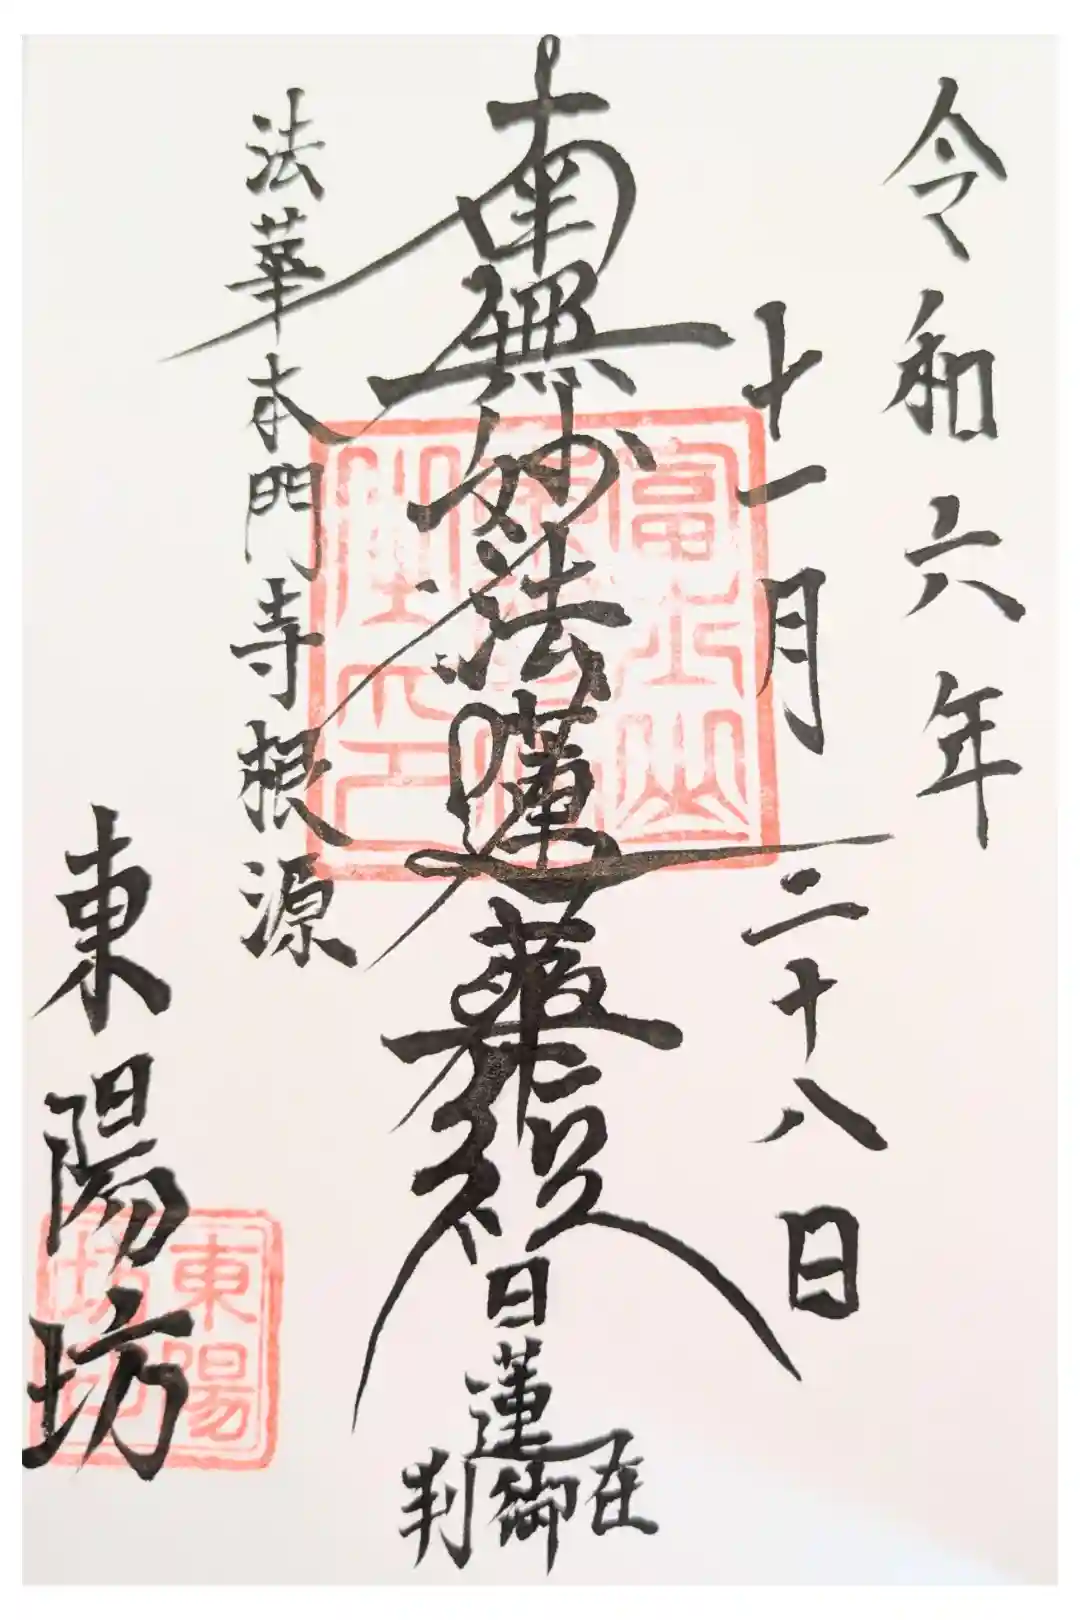 令和六年
十一月二十八日
南無妙法蓮華経
日蓮
在御判
法華本門寺根源
東陽坊
富士山
東陽坊